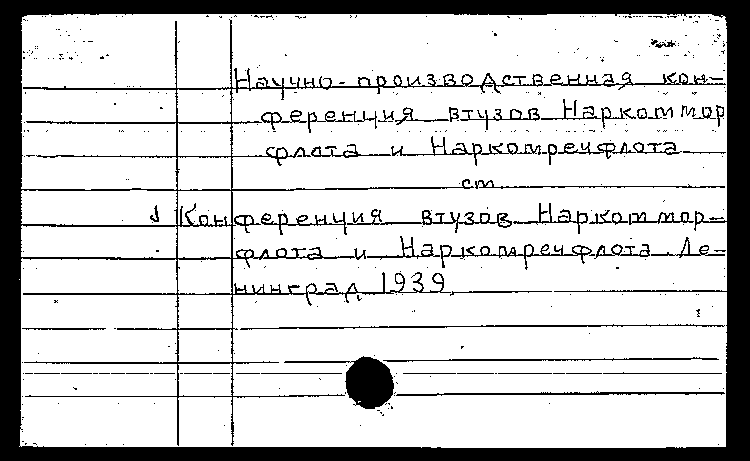 Научно-производственная кон-
ференция втузов Наркоммор
флота и Наркомречфлота
см.
Конференция втузов Наркоммор-
флота и Наркомречфлота. Ле-
нинград 1939.